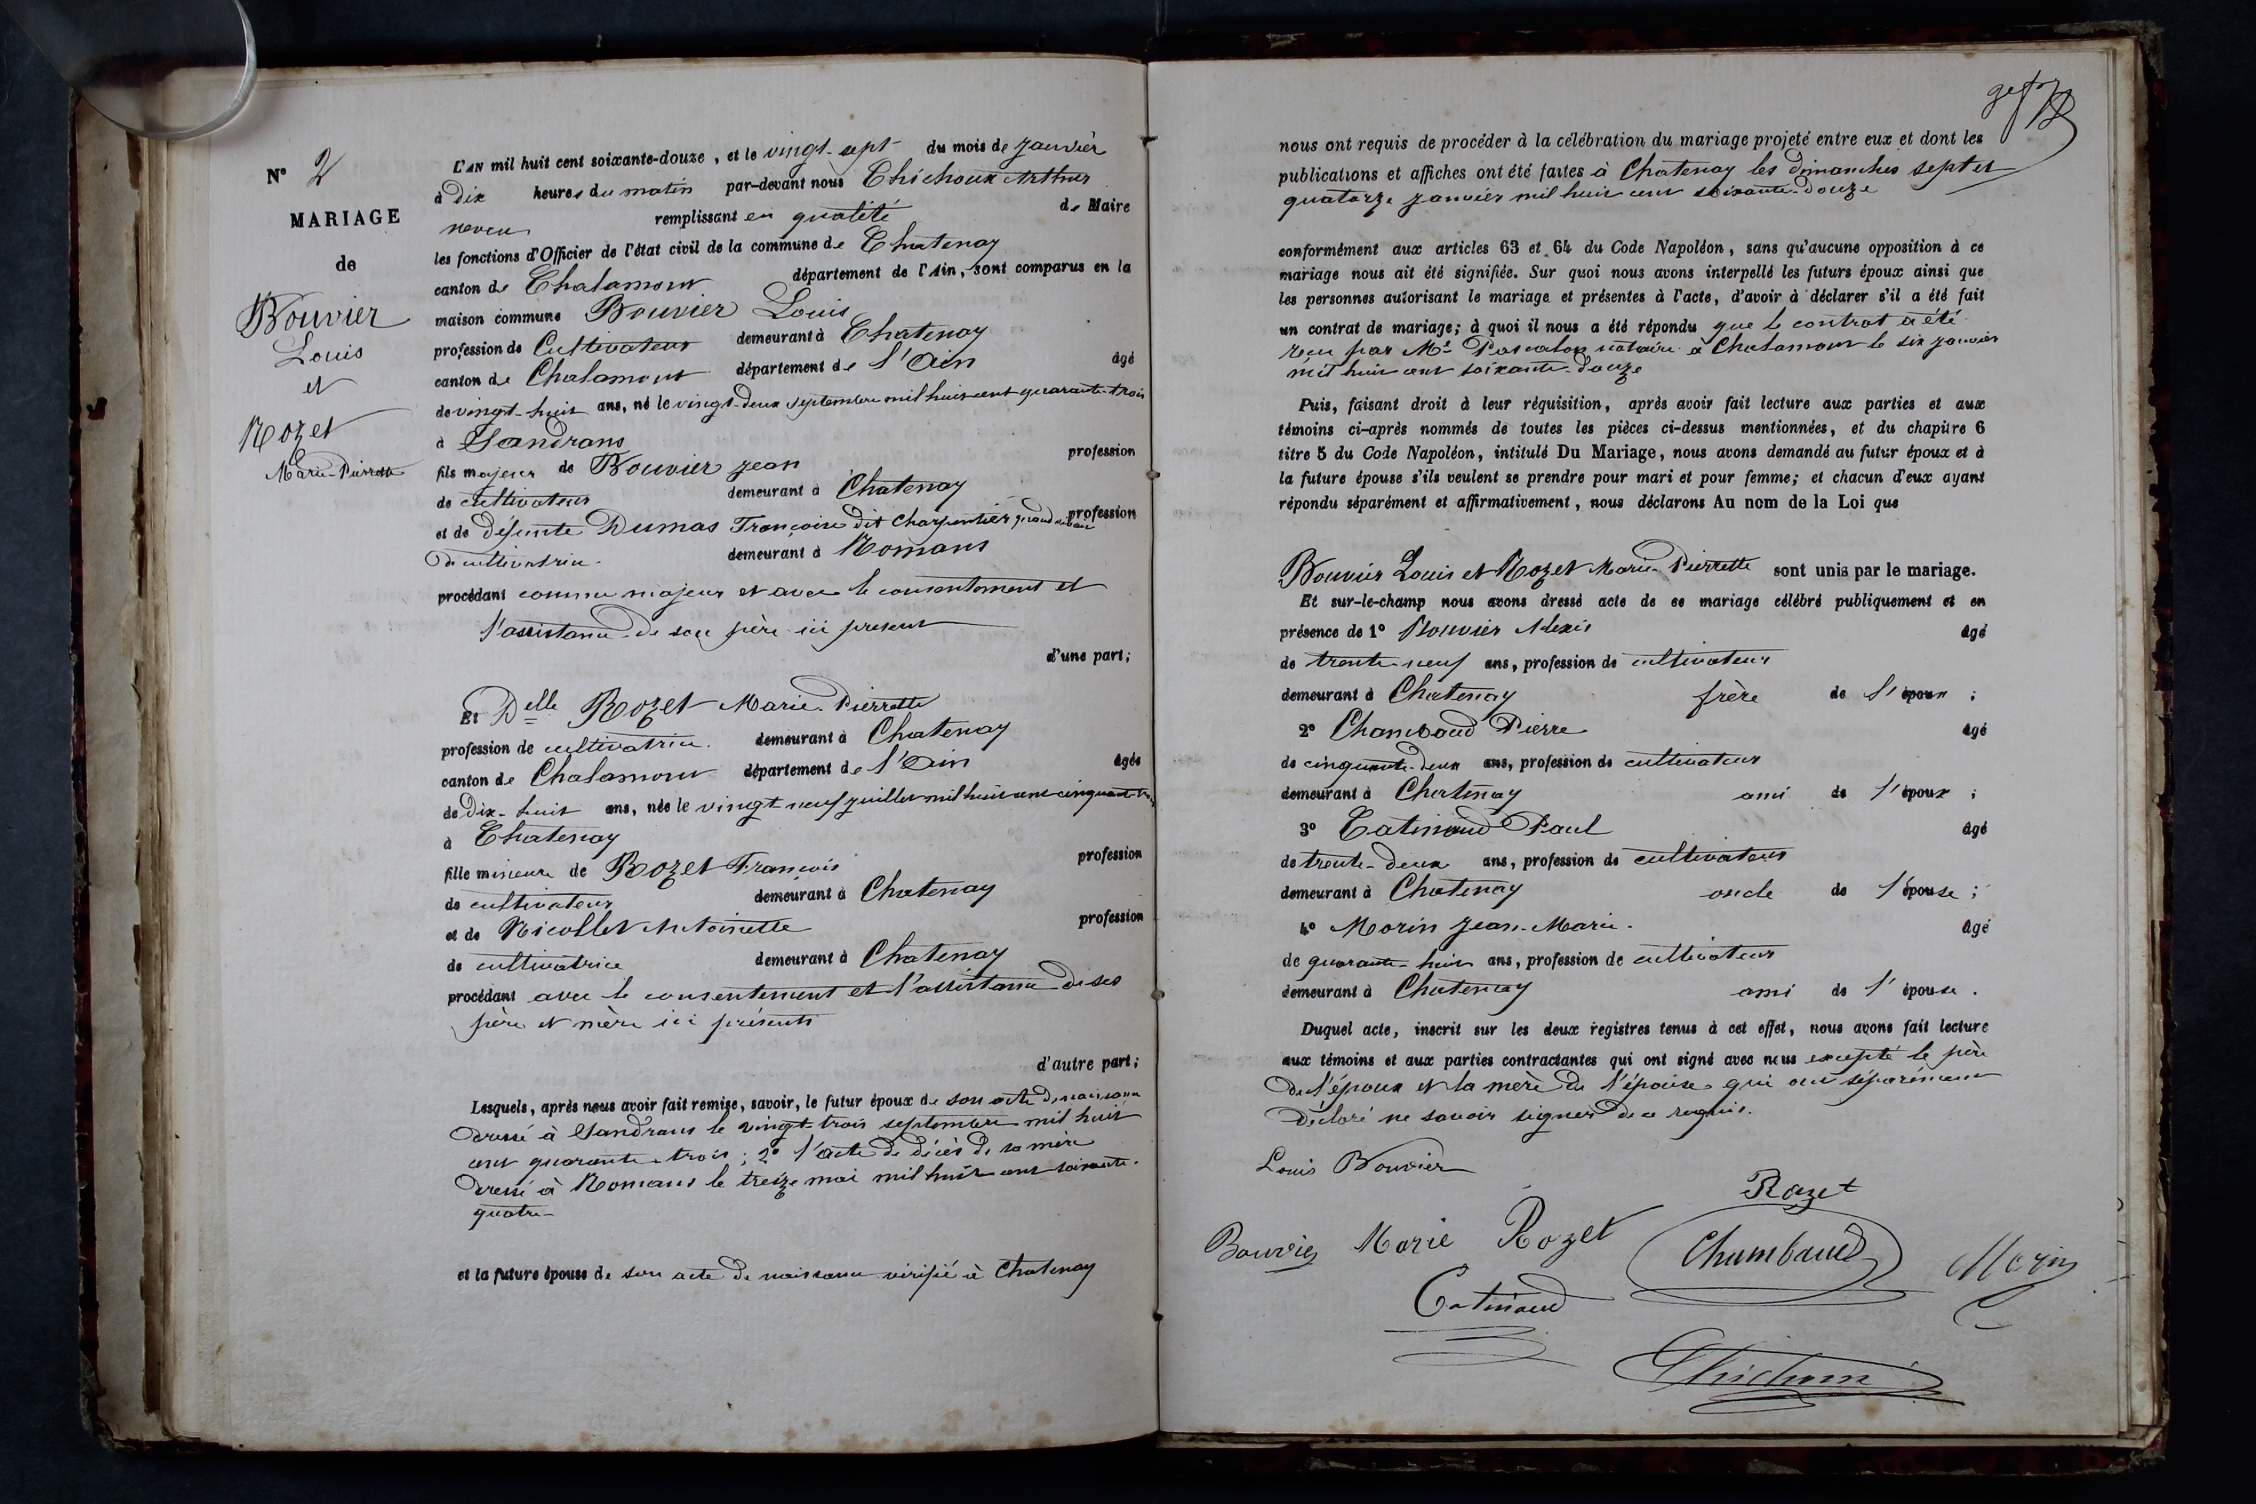 N° 2
MARIAGE
de
Bouvier
Louis
et
Rozet
Marie-Pierrette
L'AN mil huit cent soixante-douze, et le vingt-sept du mois de janvier
à dix heures du matin par-devant nous Chichoux Arthur
remplissant en qualité de Maire
les fonctions d'Officier de l'état civil de la commune de Chatenay
canton de Chalamont département de l'Ain, sont comparus en la
maison commune Bouvier Louis
profession de Cultivateur demeurant à Chatenay
canton de Chalamont département de l'Ain âgé
de vingt-huit ans, né le vingt-deux septembre mil huit cent quarante-trois
à Sandrans
fils majeur de Bouvier Jean profession
de cultivateur demeurant à Chatenay
et de défunte Dumas Françoise dit Charpentier quand vivait profession
de cultivatrice demeurant à Romans
procédant comme majeur et avec le consentement et
l'assistance de son père ici présent
d'une part;
Et Delle Rozet Marie-Pierrette
profession de cultivatrice demeurant à Chatenay
canton de Chalamont département de l'Ain âgée
de Dix-huit ans, née le vingt neuf juillet mil huit cent cinquante-trois
à Chatenay
fille mineure de Rozet François profession
de cultivateur demeurant à Chatenay
et de Nicollet Antoinette profession
de cultivatrice demeurant à Chatenay
procédant avec le consentement et l'assistance de ses
père et mère ici présents
d'autre part;
Lesquels, après nous avoir fait remise, savoir, le futur époux de son acte de naissance
dressé à Sandrans le vingt-trois septembre mil huit
cent quarante-trois; 2° l'acte de décès de sa mère
dressé à Romans le treize mai mil huit cent soixante-
quatre-
et la future épouse de son acte de naissance vérifié à Chatenay
nous ont requis de procéder à la célébration du mariage projeté entre eux et dont les
publications et affiches ont été faites à Chatenay les dimanches sept et
quatorze janvier mil huit cent soixante-douze
conformément aux articles 63 et 64 du Code Napoléon, sans qu'aucune opposition à ce
mariage nous ait été signifiée. Sur quoi nous avons interpellé les futurs époux ainsi que
les personnes autorisant le mariage et présentes à l'acte, d'avoir à déclarer s'il a été fait
un contrat de mariage; à quoi il nous a été répondu que le contrat a été
reçu par Me notaire à Chalamont le six janvier
mil huit cent soixante-douze
Puis, faisant droit à leur réquisition, après avoir fait lecture aux parties et aux
témoins ci-après nommés de toutes les pièces ci-dessus mentionnées, et du chapitre 6
titre 5 du Code Napoléon, intitulé Du Mariage, nous avons demandé au futur époux et à
la future épouse s'ils veulent se prendre pour mari et pour femme; et chacun d'eux ayant
répondu séparément et affirmativement, nous déclarons Au nom de la Loi que
Bouvier Louis et Rozet Marie-Pierrette sont unis par le mariage.
Et sur-le-champ nous avons dressé acte de ce mariage célébré publiquement et en
présence de 1° Bouvier Alexis âgé
de trente-neuf ans, profession de cultivateur
demeurant à Chatenay frère de l'époux ;
2° Chambaud Pierre âgé
de cinquante-deux ans, profession de cultivateur
demeurant à Chatenay ami de l'époux ;
3° Catinaud Paul âgé
de trente-deux ans, profession de cultivateur
demeurant à Chatenay oncle de l'épouse ;
4° Morin Jean-Marie. âgé
de quarante-huit ans, profession de cultivateur
demeurant à Chatenay ami de l'épouse .
Duquel acte, inscrit sur les deux registres tenus à cet effet, nous avons fait lecture
aux témoins et aux parties contractantes qui ont signé avec nous excepté le père
de l'époux et la mère de l'épouse qui ont séparément
déclaré ne savoir signer de ce requis.
Louis Bouvier
Rozet
Bouvier Marie Rozet Chambaud Morin
Catinaud
Chichoux